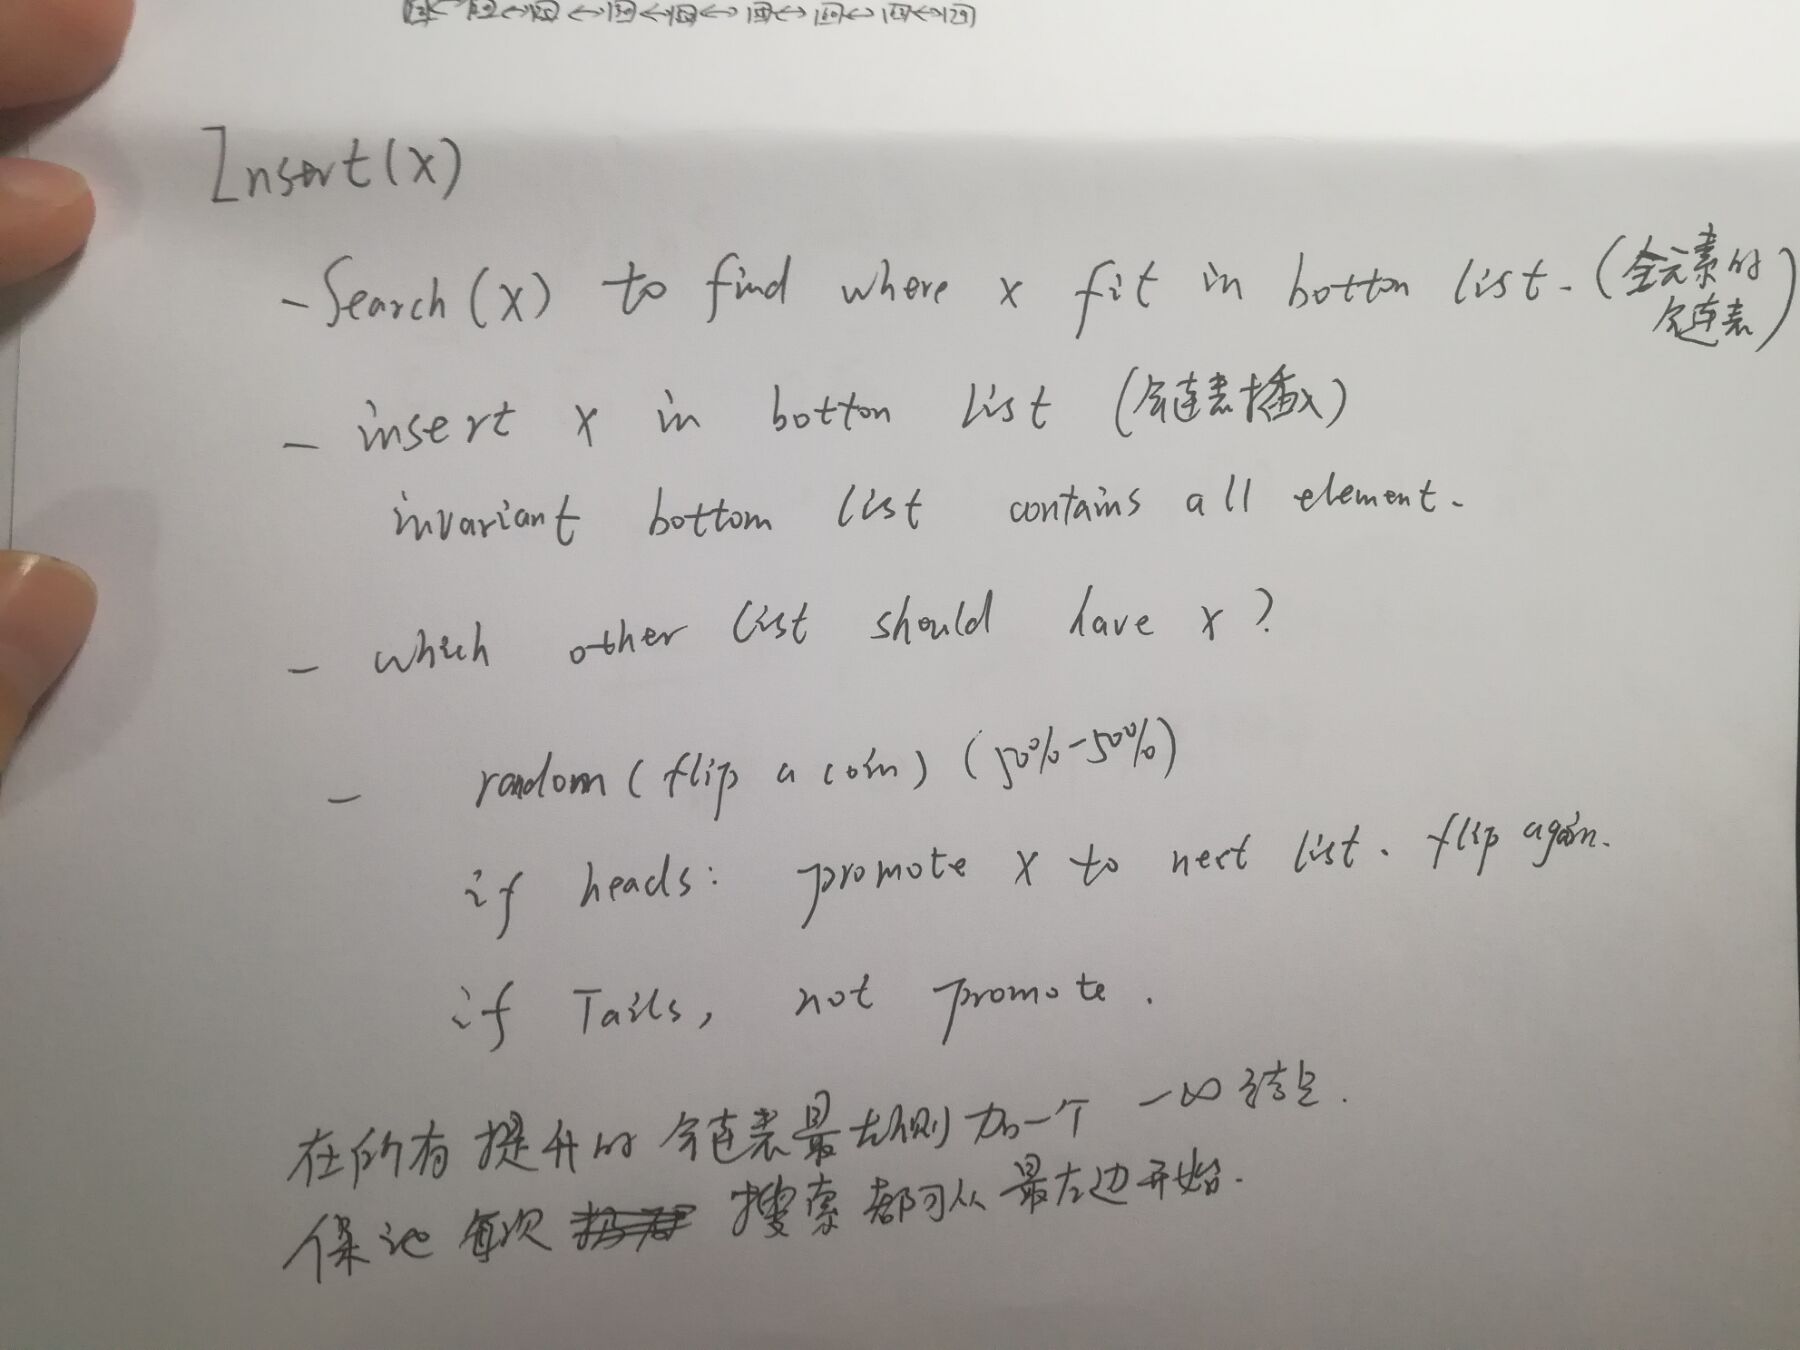 Insert(x)
- Search(x) to find where x fit in botton list. (全元素的
链表)
- insert x in botton list (链表插入)
invariant bottom list contains all element.
- which other list should have x?
- random(flip a coin) (50%-50%)
if heads: promote x to next list. flip again.
if Tails, not promote.
在所有提升的链表最左侧加一个 -∞结点.
保证每次 搜索都可从最左边开始.